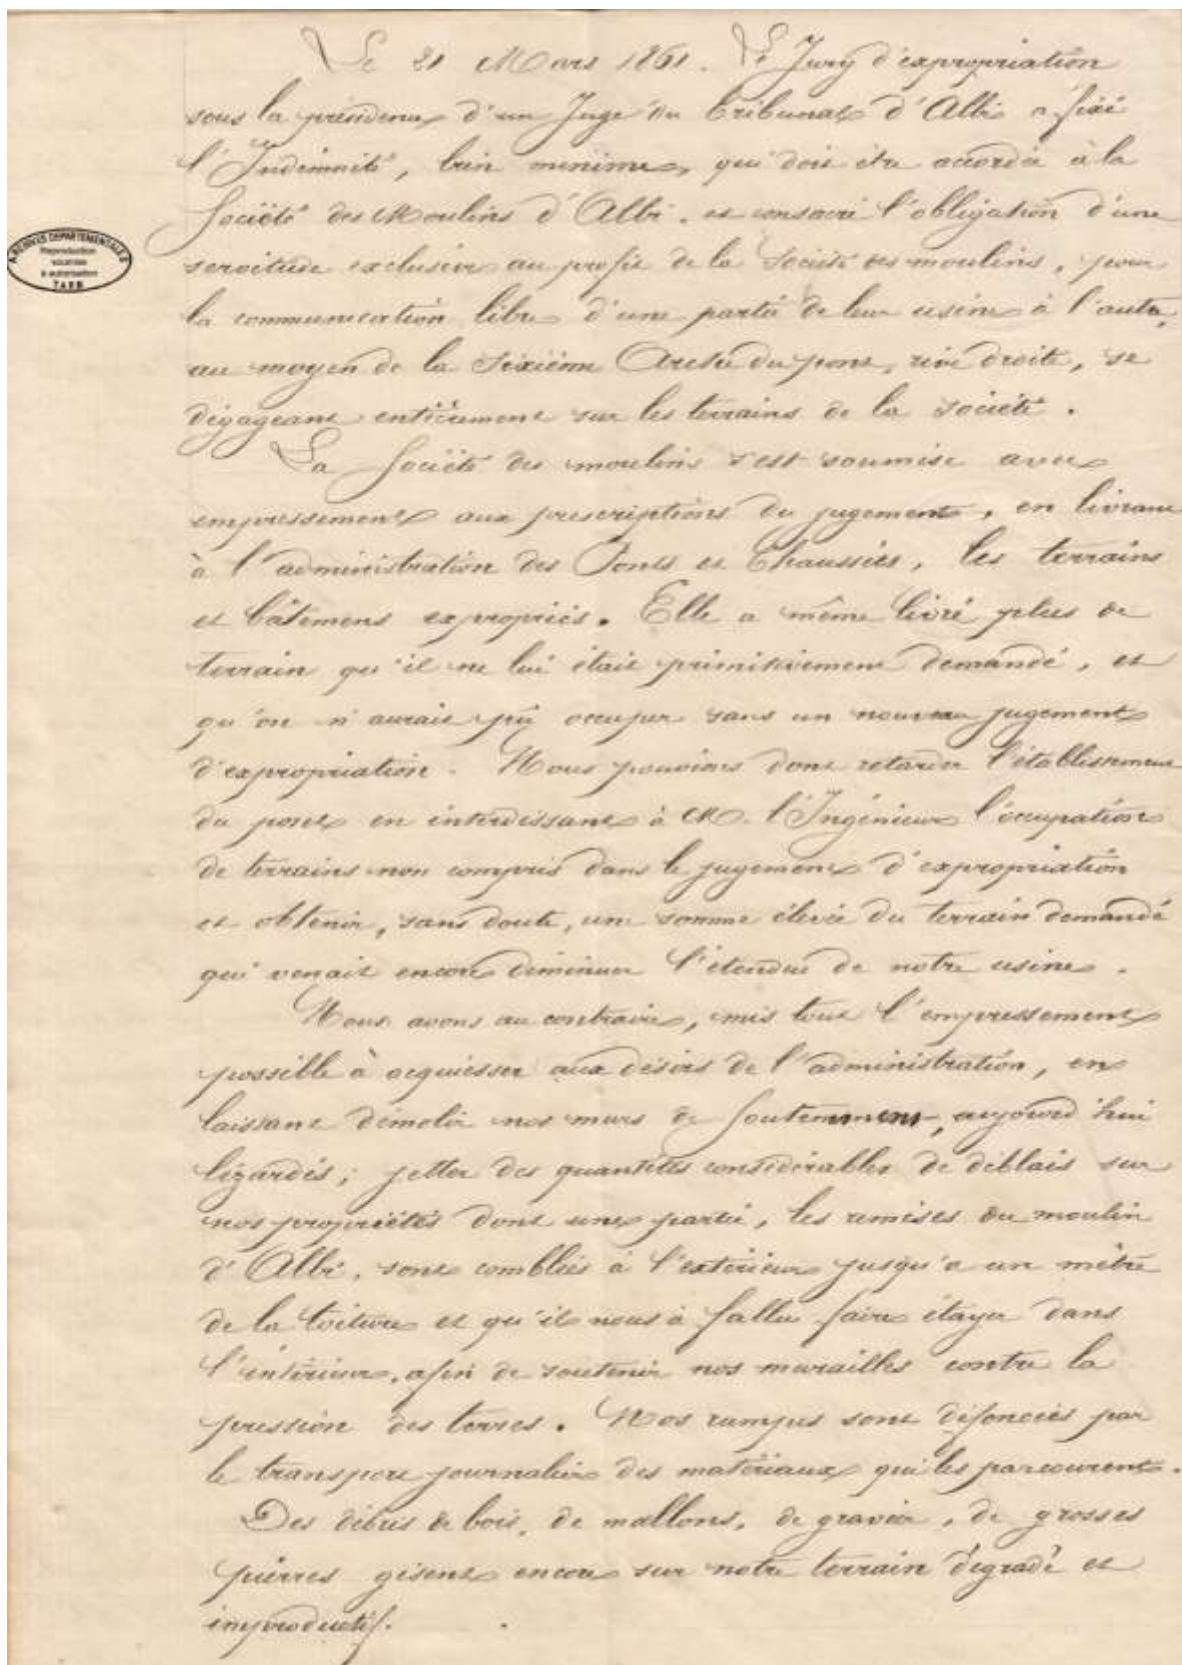 Le 21 Mars 1861. Le Jury d'expropriation
sous la présidence d'un Juge du tribunal d'Albi a fixé
l'Indemnité, bien minime, qui doit être accordée à la
Société des Moulins d'Albi. et consacré l'obligation d'une
servitude exclusive au profit de la Société des moulins, pour
la communication libre d'une partie de leur usine à l'autre,
au moyen de la sixième Arche du pont, rive droite, se
dégageant entièrement sur les terrains de la société.
La Société des moulins s'est soumise avec
empressement aux prescriptions du jugement, en livrant
à l'administration des Ponts et Chaussées, les terrains
et bâtimens expropriés. Elle a même livré plus de
terrain qu'il ne lui était primitivement demandé, et
qu'on n'aurait pû occuper sans un nouveau jugement
d'expropriation. Nous pouvions donc retarder l'établissement
du pont en interdissant à M. l'Ingénieur l'occupation
de terrains non compris dans le jugement d'expropriation
et obtenir, sans doute, une somme élevée du terrain demandé
qui venait encore diminuer l'étendue de notre usine.
Nous avons au contraire, mis tout l'empressement
possible à acquiesser aux désirs de l'administration, en
laissant démolir nos murs de soutennement, aujourd'hui
lézardés; jetter des quantités considérables de déblais sur
nos propriétés dont une partie, les remises du moulin
d'Albi, sont comblées à l'extérieur jusqu'a un mètre
de la toiture et qu'il nous à fallu faire étayer dans
l'intérieur, afin de soutenir nos murailles contre la
pression des terres. Nos rampes sont défoncées par
le transport journalier des matériaux qui les parcourent.
Des débris de bois, de mallons, de gravier, de grosses
pierres gisent encore sur notre terrain dégradé et
improductif.
ARCHIVES DEPARTEMENTALES
Reproduction
soumise
à autorisation
TARN